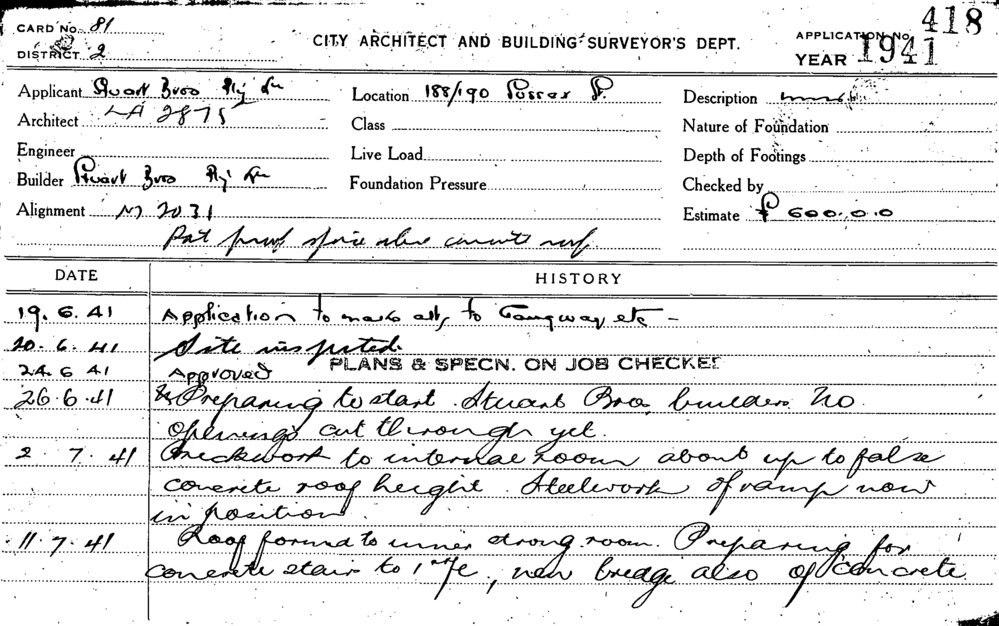 CARD No. 81
DISTRICT 2
CITY ARCHITECT AND BUILDING SURVEYOR'S DEPT.
APPLICATION No. 418
YEAR 1941
Applicant Stuart Bros Pty Ltd
Location 188/190 Sussex St.
Description
Architect LA 2875
Class
Nature of Foundation
Engineer
Live Load
Depth of Footings
Builder Stuart Bros Pty Ltd
Foundation Pressure
Checked by
Alignment M 2031
Estimate £ 600.0.0
proof above concrete roof
DATE HISTORY
19.6.41 Application to make alts to Gangway etc -
20.6.41 Site inspected.
PLANS & SPECN. ON JOB CHECKED
24.6 41 Approved
26.6.41 Preparing to start. Stuart Bros. builders. No
openings cut through yet.
2.7.41 Brickwork to internal room about up to false
concrete roof height. Steelwork of ramp now
in position.
11.7.41 Roof formed to inner strong room. Preparing for
concrete stair to 1st, new bridge also of concrete.